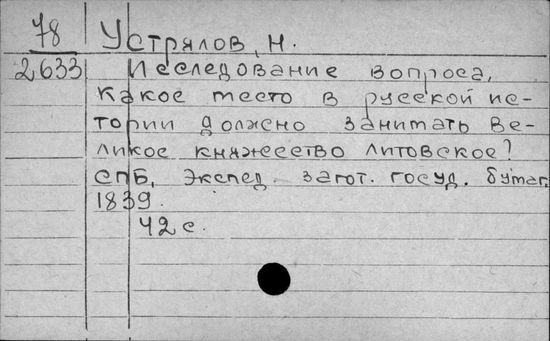 78 Устрялов, Н.
2633 Исследование вопроса,
какое место в русской ис-
тории должно занимать Ве-
ликое княжество Литовское?
СПБ, Экспед. загот. госуд. бумаг,
1839.
42 с.